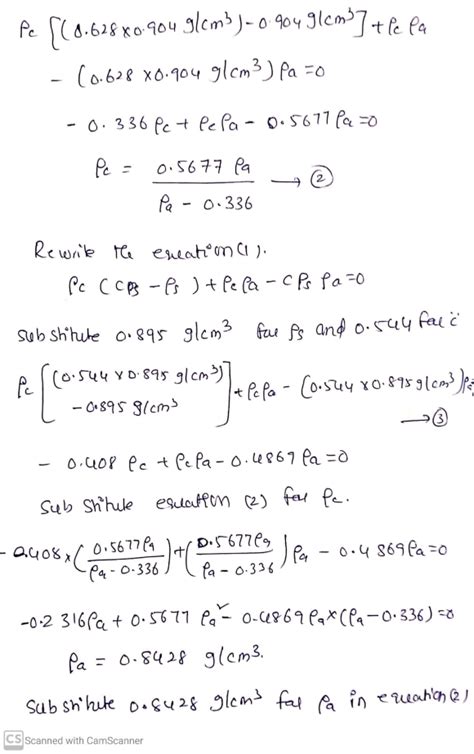 ρc [(0.628×0.904 g/cm³)-0.904 g/cm³]+ρc ρa
- (0.628 ×0.904 g/cm³) ρa =0
- 0.336 ρc + ρcρa - 0.5677 ρa =0
ρc = 0.5677 ρa / ρa - 0.336 → ②
Rewrite the equation(1).
ρc (cρs - ρs) + ρc ρa - cρs ρa =0
Substitute 0.895 g/cm³ for ρs and 0.544 for c
ρc [(0.544 × 0.895 g/cm³) - 0.895 g/cm³] + ρcρa - (0.544 × 0.895 g/cm³)
→ ③
- 0.408 ρc + ρcρa - 0.4869 ρa =0
Substitute equation (2) for ρc.
- 0.408 × (0.5677ρa / ρa - 0.336) + (0.5677ρa / ρa - 0.336) ρa - 0.4869ρa =0
-0.2316ρa + 0.5677 ρa² - 0.4869ρa×(ρa-0.336) =0
ρa = 0.8428 g/cm³.
Substitute 0.8428 g/cm³ for ρa in equation(2)
CS Scanned with CamScanner